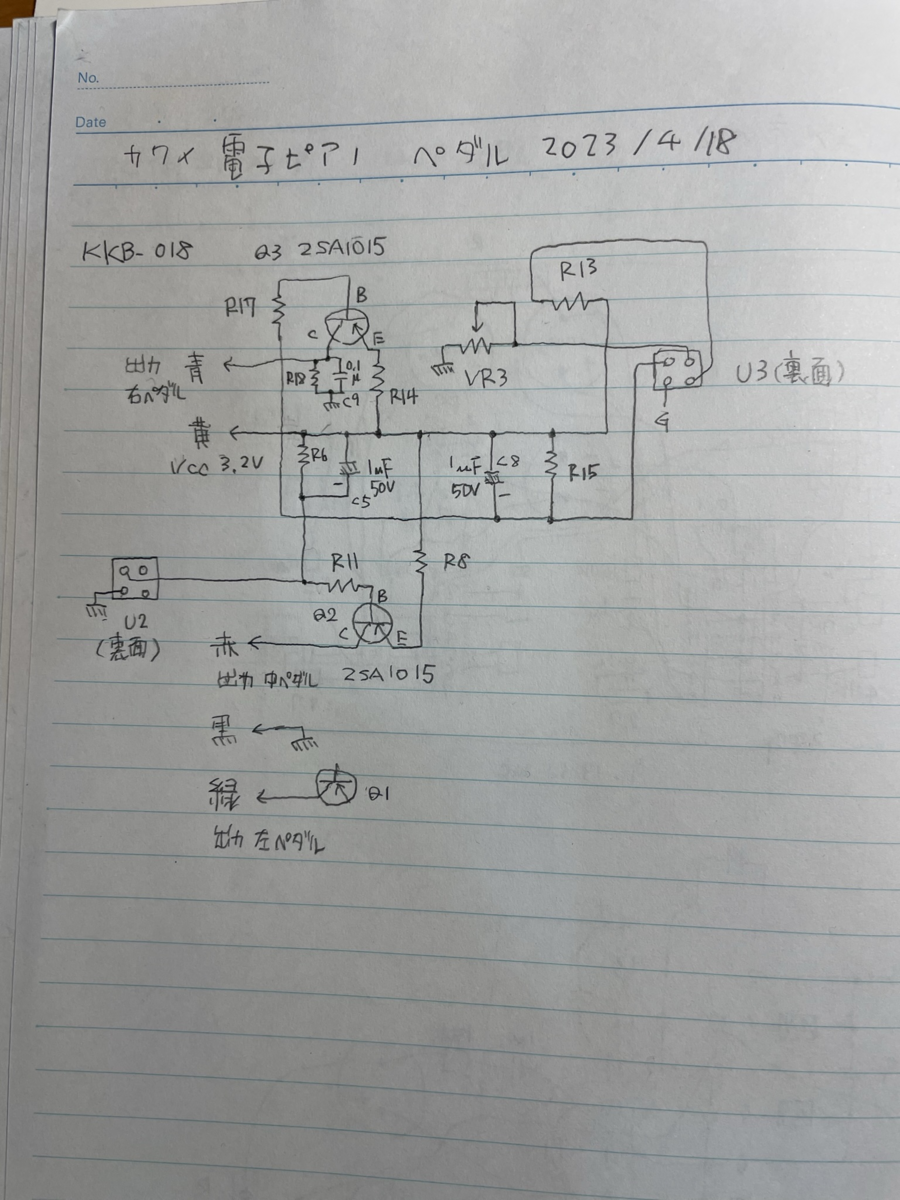 No.
Date
カワメ 電子ピアノ ペダル 2023/4/18
KKB-018 Q3 2SA1015
R13
R17 B
C E
出力 青 R18 0.1μ VR3 U3(裏面)
右ペダル C9 R14
G
黄
VCC 3.2V R6 1μF 50V - C5 1μF 50V - C8 R15
R11 R8
B
U2 Q2 C E
(裏面) 赤
出力 中ペダル 2SA1015
黒
緑 Q1
出力 左ペダル